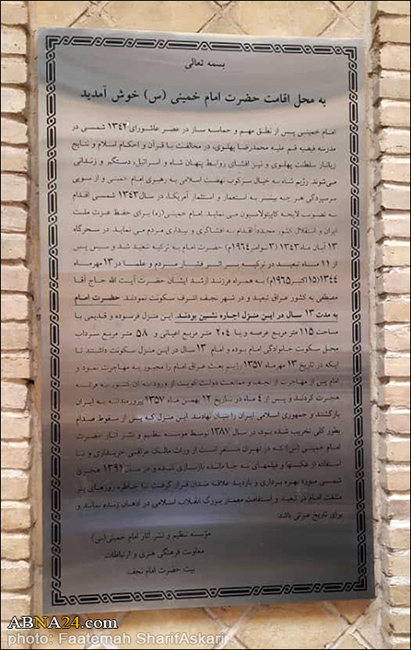 بسمه تعالی
به محل اقامت حضرت امام خمینی (س) خوش آمدید
امام خمینی پس از نطق مهم و حماسه ساز در عصر عاشورای ۱۳۴۲ شمسی در
مدرسه فیضیه قم علیه محمدرضا پهلوی، در مخالفت با قرآن و احکام اسلام و نتایج
زیانبار سلطنت پهلوی و نیز افشای روابط پنهان شاه و اسرائیل، دستگیر و زندانی
می‌شوند. رژیم شاه به خیال سرکوب نهضت اسلامی به رهبری امام خمینی و از سویی
سرسپردگی هر چه بیشتر به استعمار و استثمار آمریکا، در سال ۱۳۴۳ شمسی اقدام
به تصویب لایحه کاپیتولاسیون می نماید. امام خمینی(ره) برای حفظ عزت ملت
ایران و انقلاب کنور مجدداً اقدام به افشاگری و بیداری مردم می نماید. در سحرگاه
۱۳ آبان ماه ۱۳۴۳ (۴ نوامبر ۱۹۶۴م) حضرت امام به ترکیه تبعید شد و سپس پس
از ۱۱ ماه تبعید در ترکیه بر اثر فشار مردم و علما در ۱۳ مهر ماه
۱۳۴۴ (۵ اکتبر ۱۹۶۵م) به همراه فرزند ارشد ایشان حضرت آیت الله حاج آقا
مصطفی به کشور عراق تبعید و در شهر نجف اشرف سکونت نمودند. حضرت امام
به مدت ۱۳ سال در این منزل اجاره نشین بودند. این منزل فرسوده و قدیمی با
مساحت ۱۱۵ متر مربع عرصه و با ۲۰۴ متر مربع اعیانی و ۵۸ متر مربع سرداب
محل سکونت خانوادگی امام بوده و امام ۱۳ سال در این منزل سکونت داشتند تا
اینکه در تاریخ ۱۳ مهر ماه ۱۳۵۷ رژیم بعث عراق امام را مجبور به مهاجرت نمود و
امام پس از مهاجرت از نجف و ممانعت دولت کویت از ورود به آن کشور به فرانسه
هجرت کردند و پس از ۴ ماه در تاریخ ۱۲ بهمن ماه ۱۳۵۷ پیروزمندانه به ایران
بازگشتند و جمهوری اسلامی ایران را بنیان نهادند. این منزل که پس از سقوط صدام
بطور کلی تخریب شده بود، در سال ۱۳۸۷ توسط موسسه تنظیم و نشر آثار حضرت
امام خمینی (س) که در تهران مستقر است از وراث مالک عراقی خریداری و با
استفاده از عکسها و فیلمهای به جا مانده بازسازی شده و در سال ۱۳۹۱ هجری
شمسی مورد بهره برداری و بازدید علاقه مندان قرار گرفت تا خاطره روزهای پر
مشقت امام در تبعید و استقامت معمار بزرگ انقلاب اسلامی در اذهان زنده بماند و
برای تاریخ عبرتی باشد
مؤسسه تنظیم و نشر آثار امام خمینی(س)
معاونت فرهنگی هنری و ارتباطات
بیت حضرت امام نجف
ABNA24.com
photo: Faatemah SharifAskari